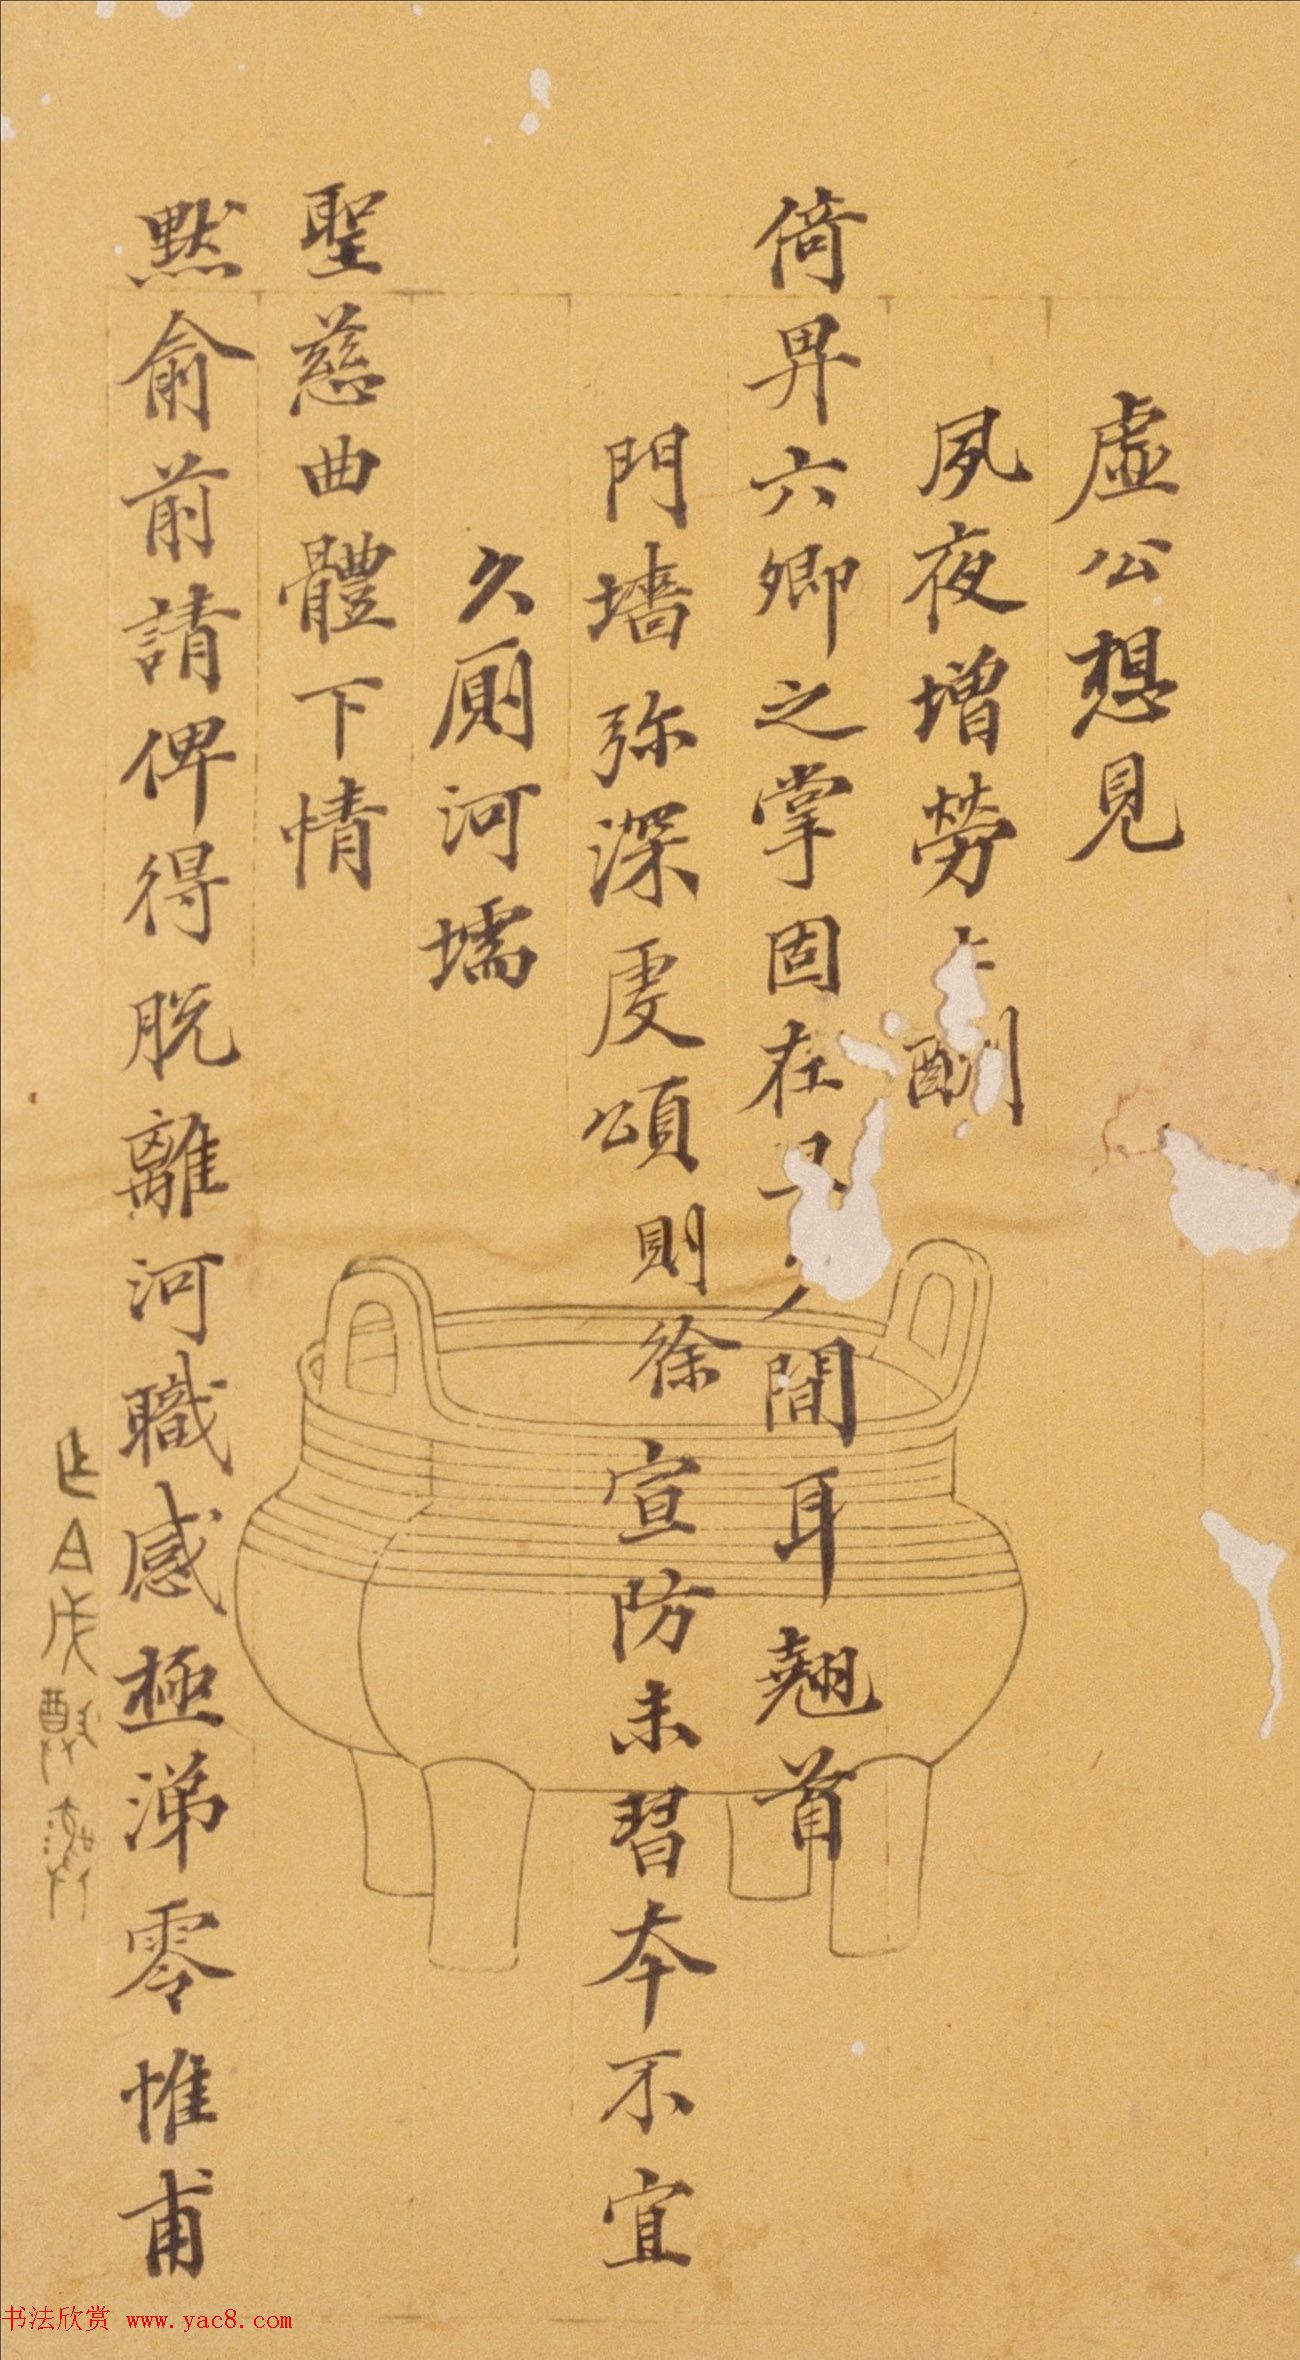 虛公想見
夙夜增勞
倚畀六卿之掌固在 間耳翹首
門墻弥深虔頌則徐宣防未習本不宜
久厕河壖
聖慈曲體下情
默俞前請俾得脱離河職感極涕零惟甫
书法欣赏 www.yac8.com